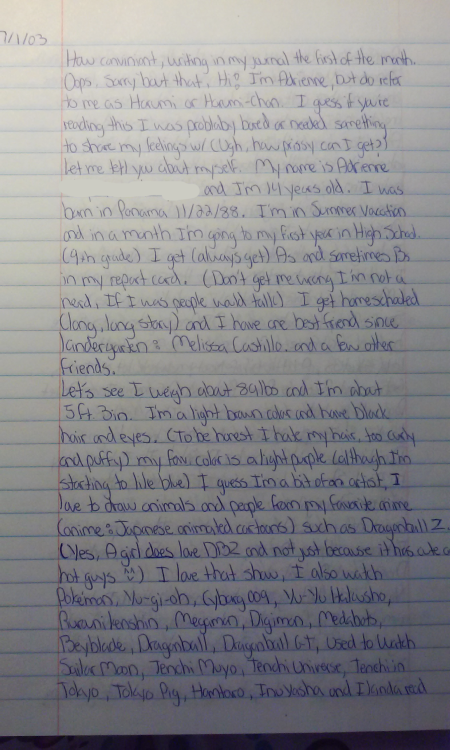 7/1/03
How convinient, writing in my journal the first of the month.
Oops. Sorry bout that. Hi! I'm Adrienne, but do refer
to me as Harumi or Harumi-chan. I guess if you're
reading this I was probably bored or needed something
to share my feelings w/ (Ugh, how prissy can I get?)
Let me tell you about myself. My name is Adrienne
and I'm 14 years old. I was
born in Panama 11/22/88. I'm in Summer Vacation
and in a month I'm going to my first year in High School.
(9th grade) I get (always get) As and sometimes Bs
in my report card. (Don't get me wrong I'm not a
nerd, If I was people would talk) I get homeschooled
(long, long story) and I have one best friend since
kindergarten: Melissa Castillo. and a few other
friends.
Let's see I weigh about 89lbs and I'm about
5ft. 3in. I'm a light brown color and have black
hair and eyes. (To be honest I hate my hair, too curly
and puffy) my fav. color is a light purple (although I'm
starting to like blue) I guess I'm a bit of an artist, I
love to draw animals and people from my favorite anime
(anime: Japanese animated cartoons) such as Dragonball Z.
(Yes, A girl does love DBZ and not just because it has cute a
hot guys ^^) I love that show, I also watch
Pokemon, Yu-gi-oh, Cyborg 009, Yu-Yu Hakusho,
Rurouni Kenshin, Megaman, Digimon, Medabots,
Beyblade, Dragonball, Dragonball G-T, Used to watch
Sailor Moon, Tenchi Muyo, Tenchi Universe, Tenchi in
Tokyo, Tokyo Pig, Hamtaro, InuYasha and I kinda read